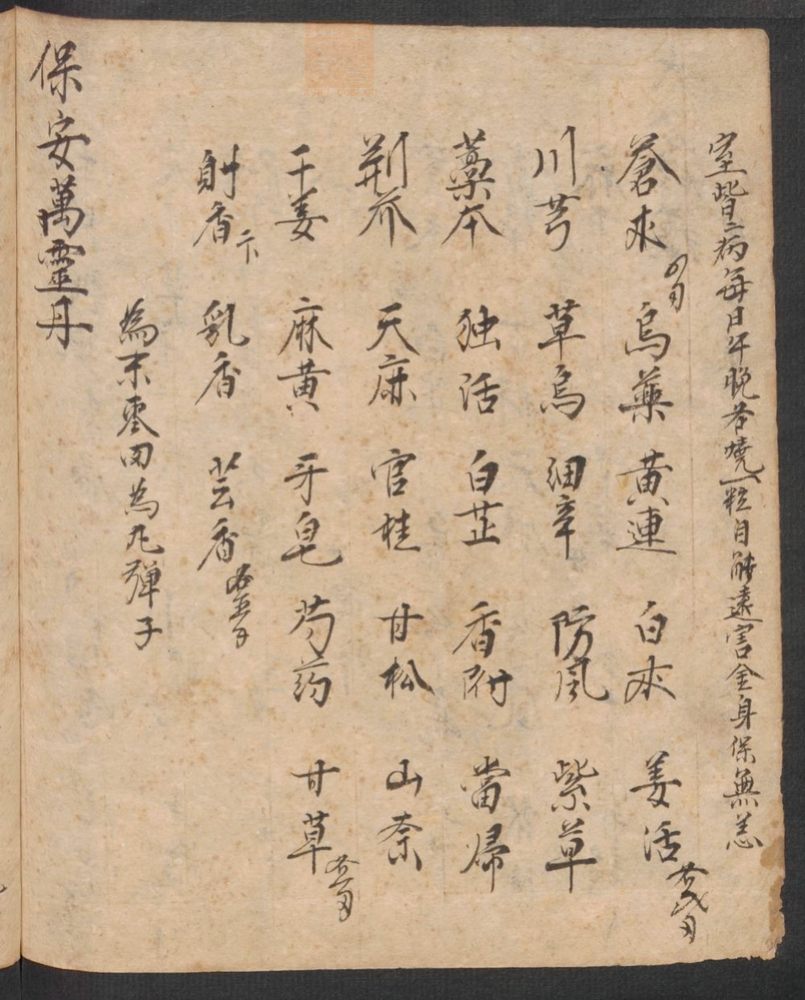 室皆病每日午晚各燒一粒自能遠害全身保無恙
蒼朮 烏藥 黃連 白朮 羌活
川芎 草烏 細辛 防風 紫草
藁本 独活 白芷 香附 當帰
荊芥 天麻 官桂 甘松 山奈
干姜 麻黄 牙皂 芍药 甘草
射香 乳香 芸香
為末 為丸弾子
保安萬靈丹